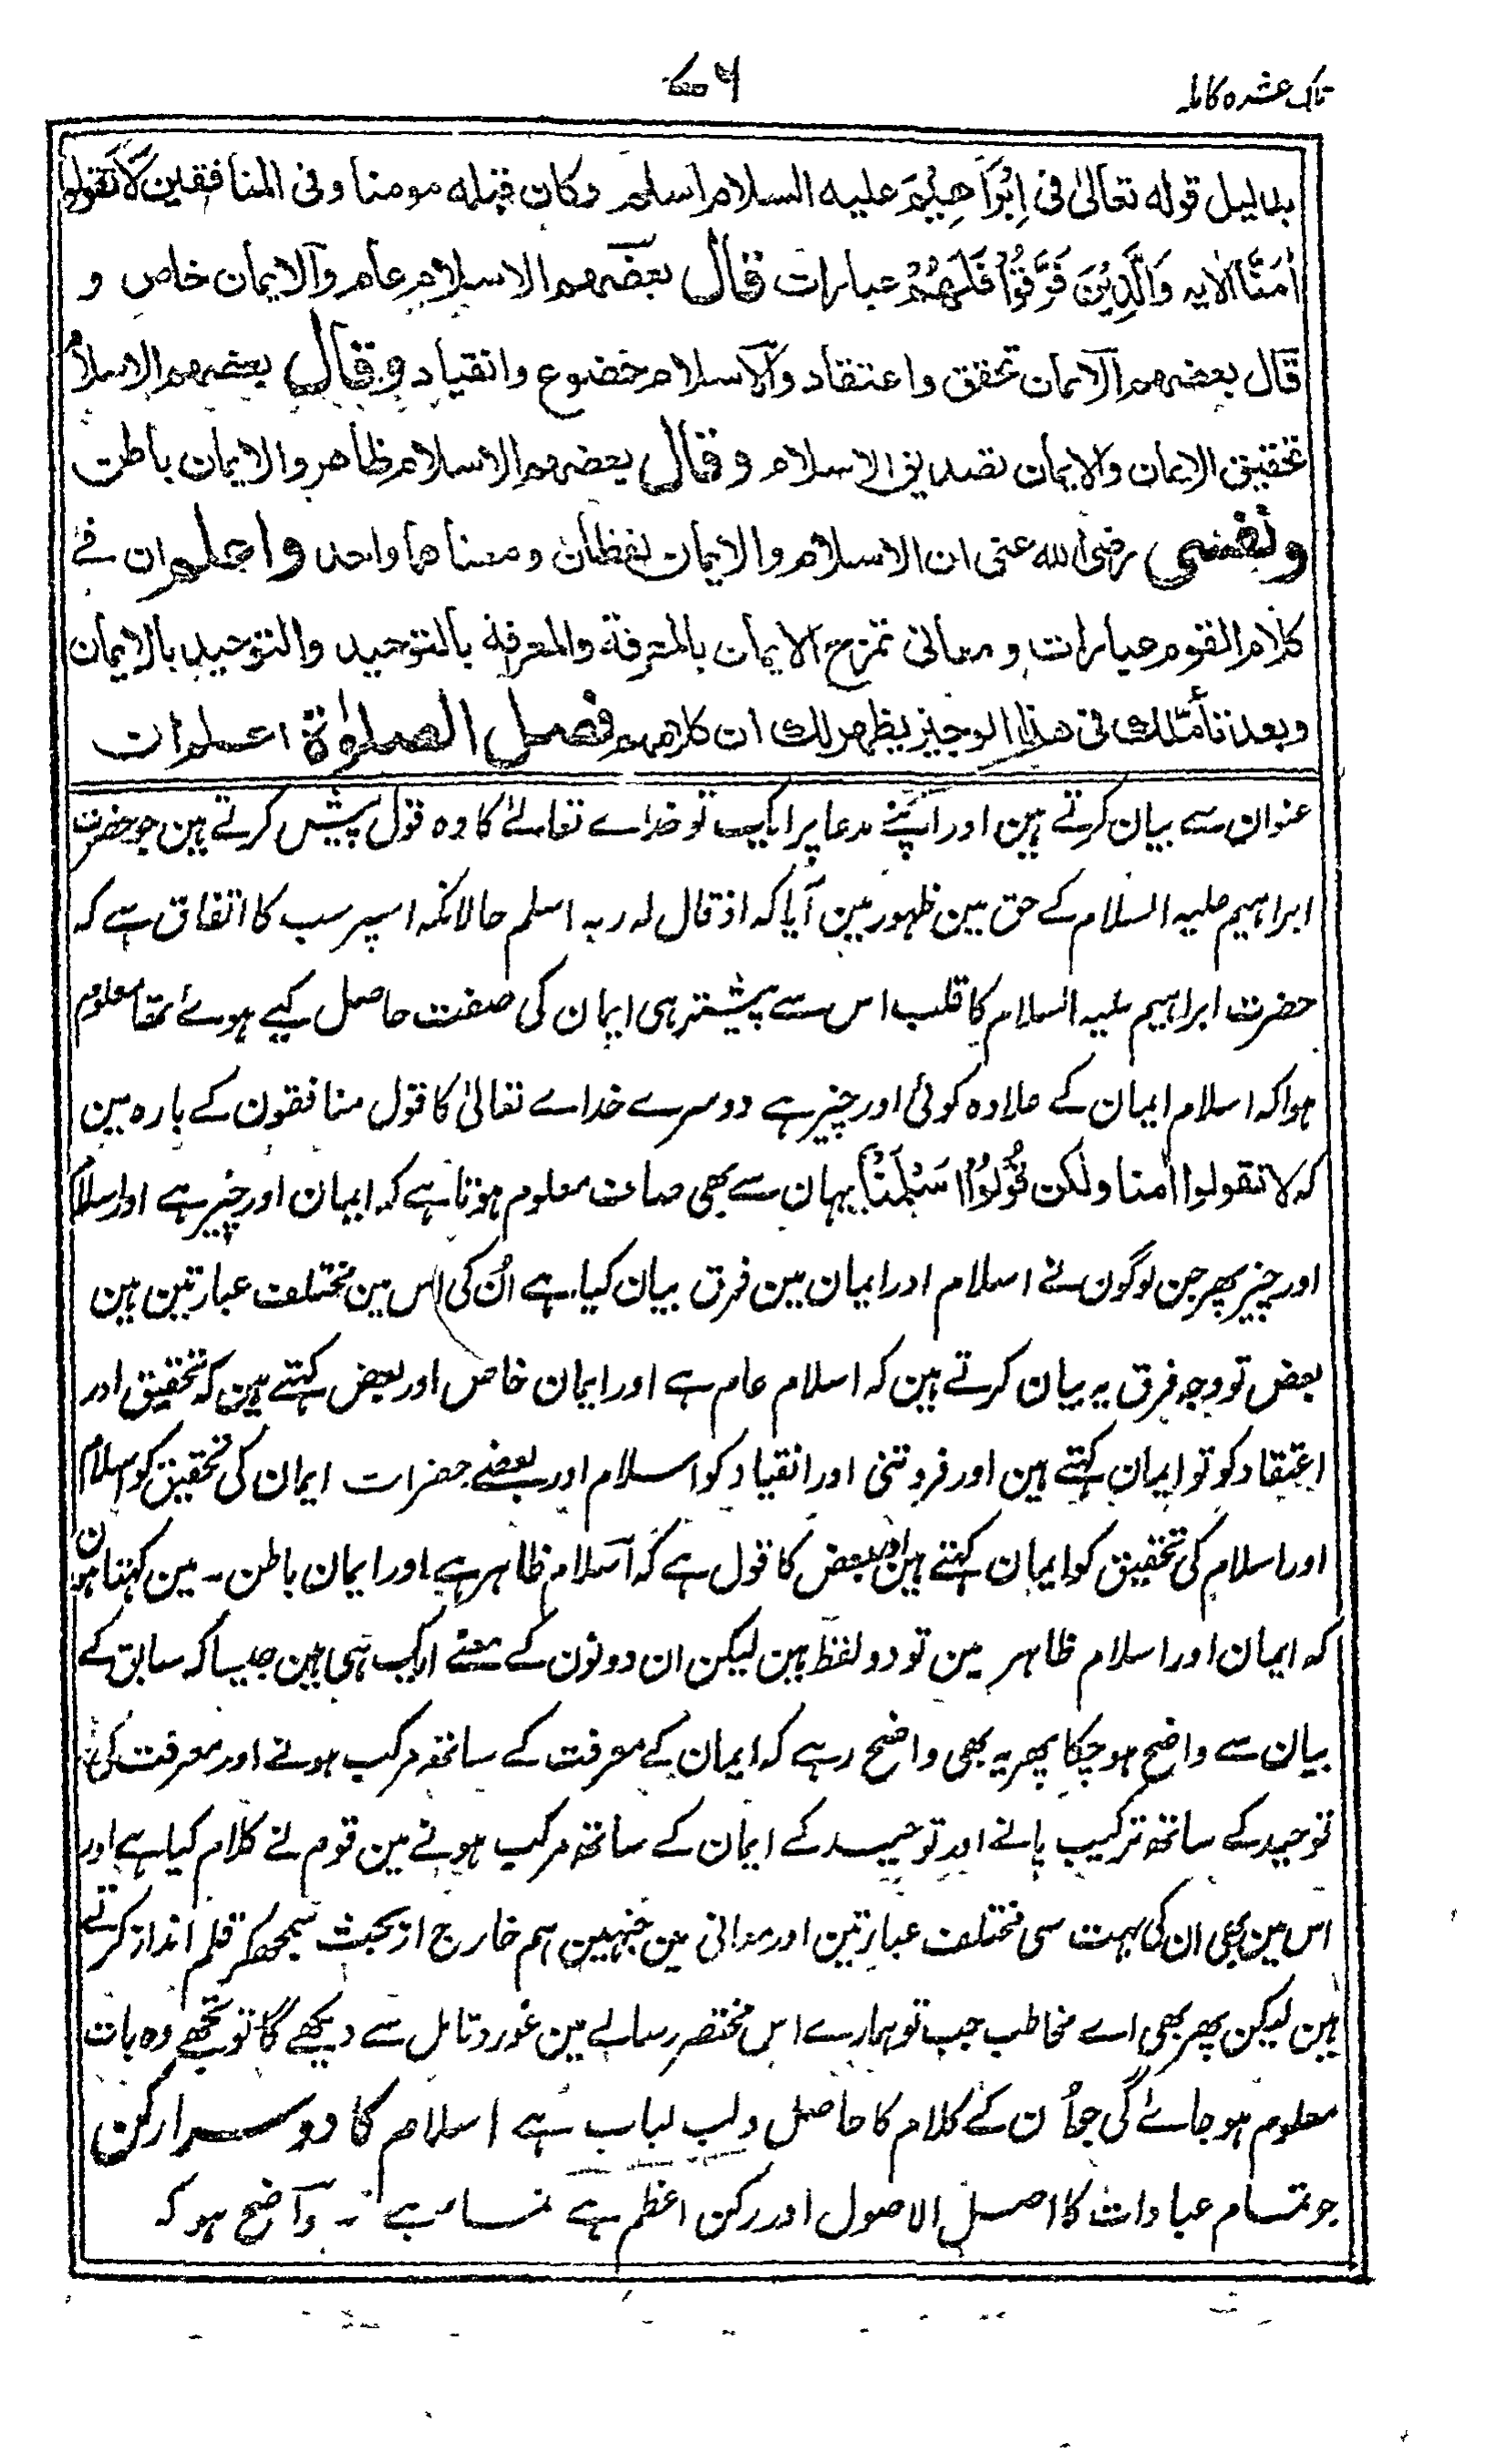 تلک عشرہ کاملہ
۷۶
بدلیل قوله تعالیٰ فی اِبْرَاهِیْمَ علیه السلام اسلم وکان قبله مومنا وفی المنافقین لَا تقولوا
اٰمَنَّا الاٰیه وَالَّذِیْنَ فَرَّقُوْا فَلَهُمْ عبارات قال بعضهم الاسلام عام والایمان خاص و
قال بعضهم الایمان تحقق واعتقاد والاسلام خضوع وانقیاد وقال بعضهم الاسلام
تحقیق الایمان والایمان تصدیق الاسلام وقال بعضهم الاسلام ظاهر والایمان باطن
وبفضی رضی الله عنی ان الاسلام والایمان لفظان ومعناهما واحد واعلم ان فی
کلام القوم عبارات ومعانی تمزج الایمان بالمعرفة والمعرفة بالتوحید والتوحید بالایمان
وبعد تأملك فی هذا الوجیز یظهر لك ان کلامهم فصل الصلوٰة اعلم ان
عنوان سے بیان کرتے ہین اور اپنے مدعا پر ایک تو خداے تعالےٰ کا وہ قول پیش کرتے ہین جو حضرت
ابراہیم علیہ السلام کے حق مین ظہور مین آیا کہ اذ قال لہ ربہ اسلم حالانکہ اسپر سب کا اتفاق ہے کہ
حضرت ابراہیم علیہ السلام کا قلب اس سے پیشتر ہی ایمان کی صفت حاصل کیے ہوئے تھا معلوم
ہوا کہ اسلام ایمان کے علاوہ کوئی اور چیز ہے دوسرے خداے تعالیٰ کا قول منافقون کے بارہ مین
کہ لا تقولوا اٰمنا ولکن قُوْلُوْا اَسْلَمْنَا یہان سے بھی صاف معلوم ہوتا ہے کہ ایمان اور چیز ہے اور اسلام
اور چیز پھر جن لوگون نے اسلام اور ایمان مین فرق بیان کیا ہے اُن کی اس مین مختلف عبارتین ہین
بعض تو وجہ فرق یہ بیان کرتے ہین کہ اسلام عام ہے اور ایمان خاص اور بعض کہتے ہین کہ تحقیق اور
اعتقاد کو تو ایمان کہتے ہین اور فروتنی اور انقیاد کو اسلام اور بعضے حضرات ایمان کی تحقیق کو اسلام
اور اسلام کی تحقیق کو ایمان کہتے ہین اور بعض کا قول ہے کہ اسلام ظاہر ہے اور ایمان باطن ۔ مین کہتا ہون
کہ ایمان اور اسلام ظاہر مین تو دو لفظ ہین لیکن ان دونون کے معنے ایک ہی ہین جیسا کہ سابق کے
بیان سے واضح ہو چکا پھر یہ بھی واضح رہے کہ ایمان کے معرفت کے ساتھ مرکب ہونے اور معرفت کی
توحید کے ساتھ ترکیب پانے اور توحید کے ایمان کے ساتھ مرکب ہونے مین قوم نے کلام کیا ہے اور
اس مین بھی ان کی بہت سی مختلف عبارتین اور معانی ہین جنہین ہم خارج از بحث سمجھکر قلم انداز کرتے
ہین لیکن پھر بھی اے مخاطب جب تو ہمارے اس مختصر رسالے مین غور و تامل سے دیکھے گا تو تجھے وہ بات
معلوم ہو جائے گی جو اُن کے کلام کا حاصل و لب لباب ہے اسلام کا دوسرا رکن
جو تمام عبادات کا اصل الاصول اور رکن اعظم ہے نماز ہے ۔ واضح ہو کہ